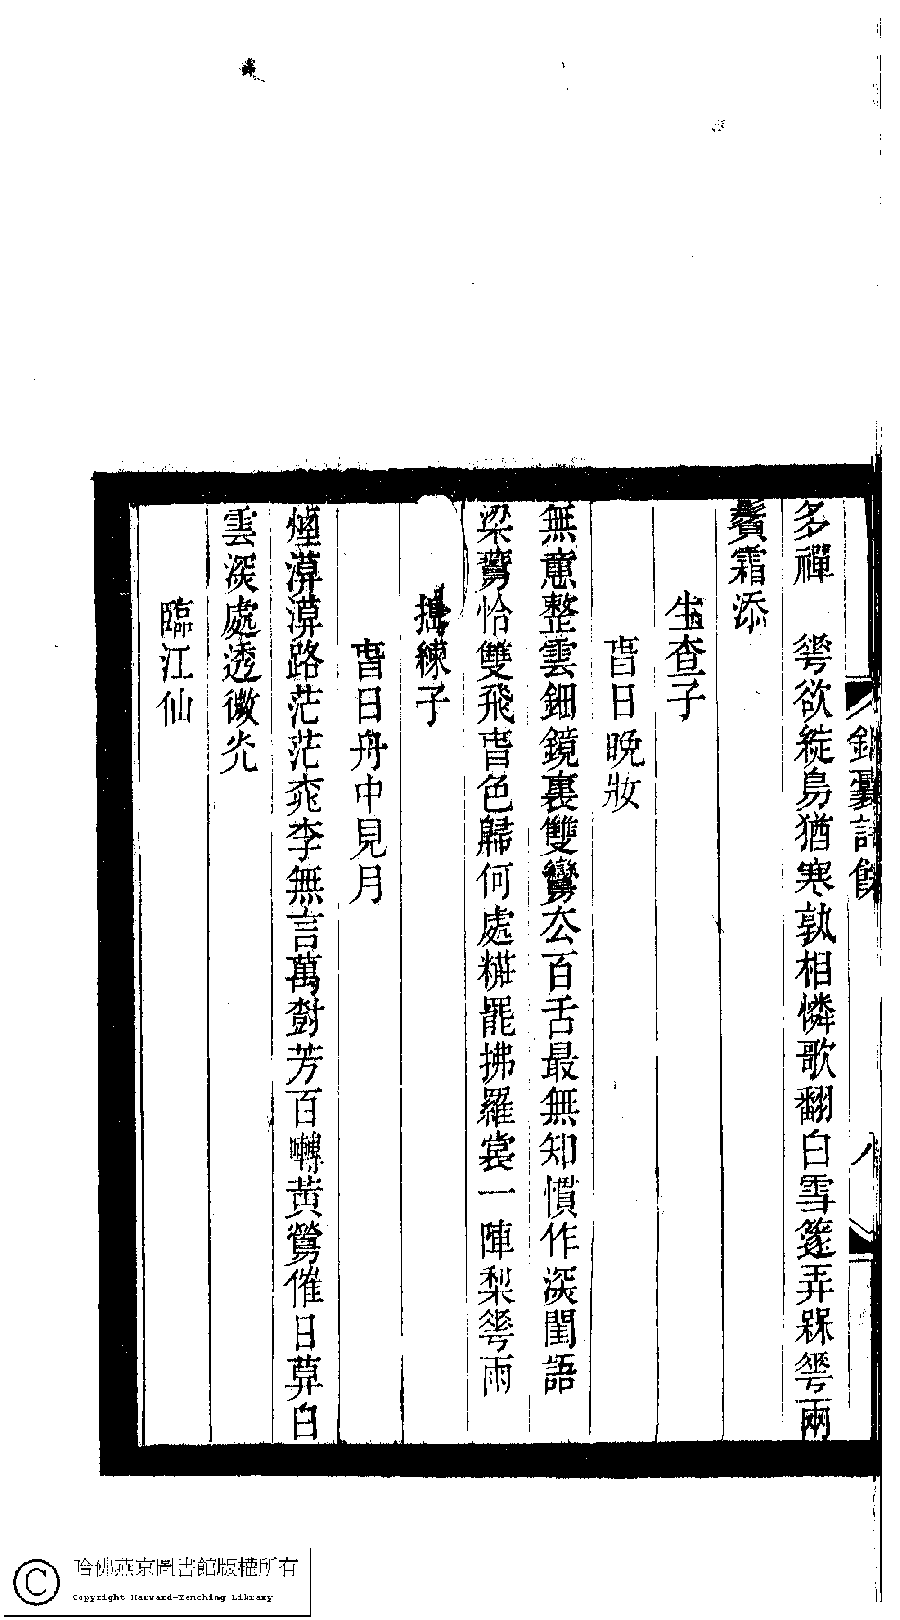 多禪　䓵欲綻鳥猶寒孰相憐歌翻白雪篷弄梅䓵兩
鬢霜添
生查子
旾日晚妝
無意整雲鈿鏡裏雙鸞厺百舌最無知慣作深閨語
梁鷰恰雙飛旾色歸何處糚罷拂羅裳一陣梨䓵雨
搗練子
旾日舟中見月
煙漠漠路茫茫桃李無言萬樹芳百囀黃鶯催日莫白
雲深處透微光
臨江仙
囊詩餘
八
哈佛燕京圖書館版權所有
Copyright Harvard-Yenching Library